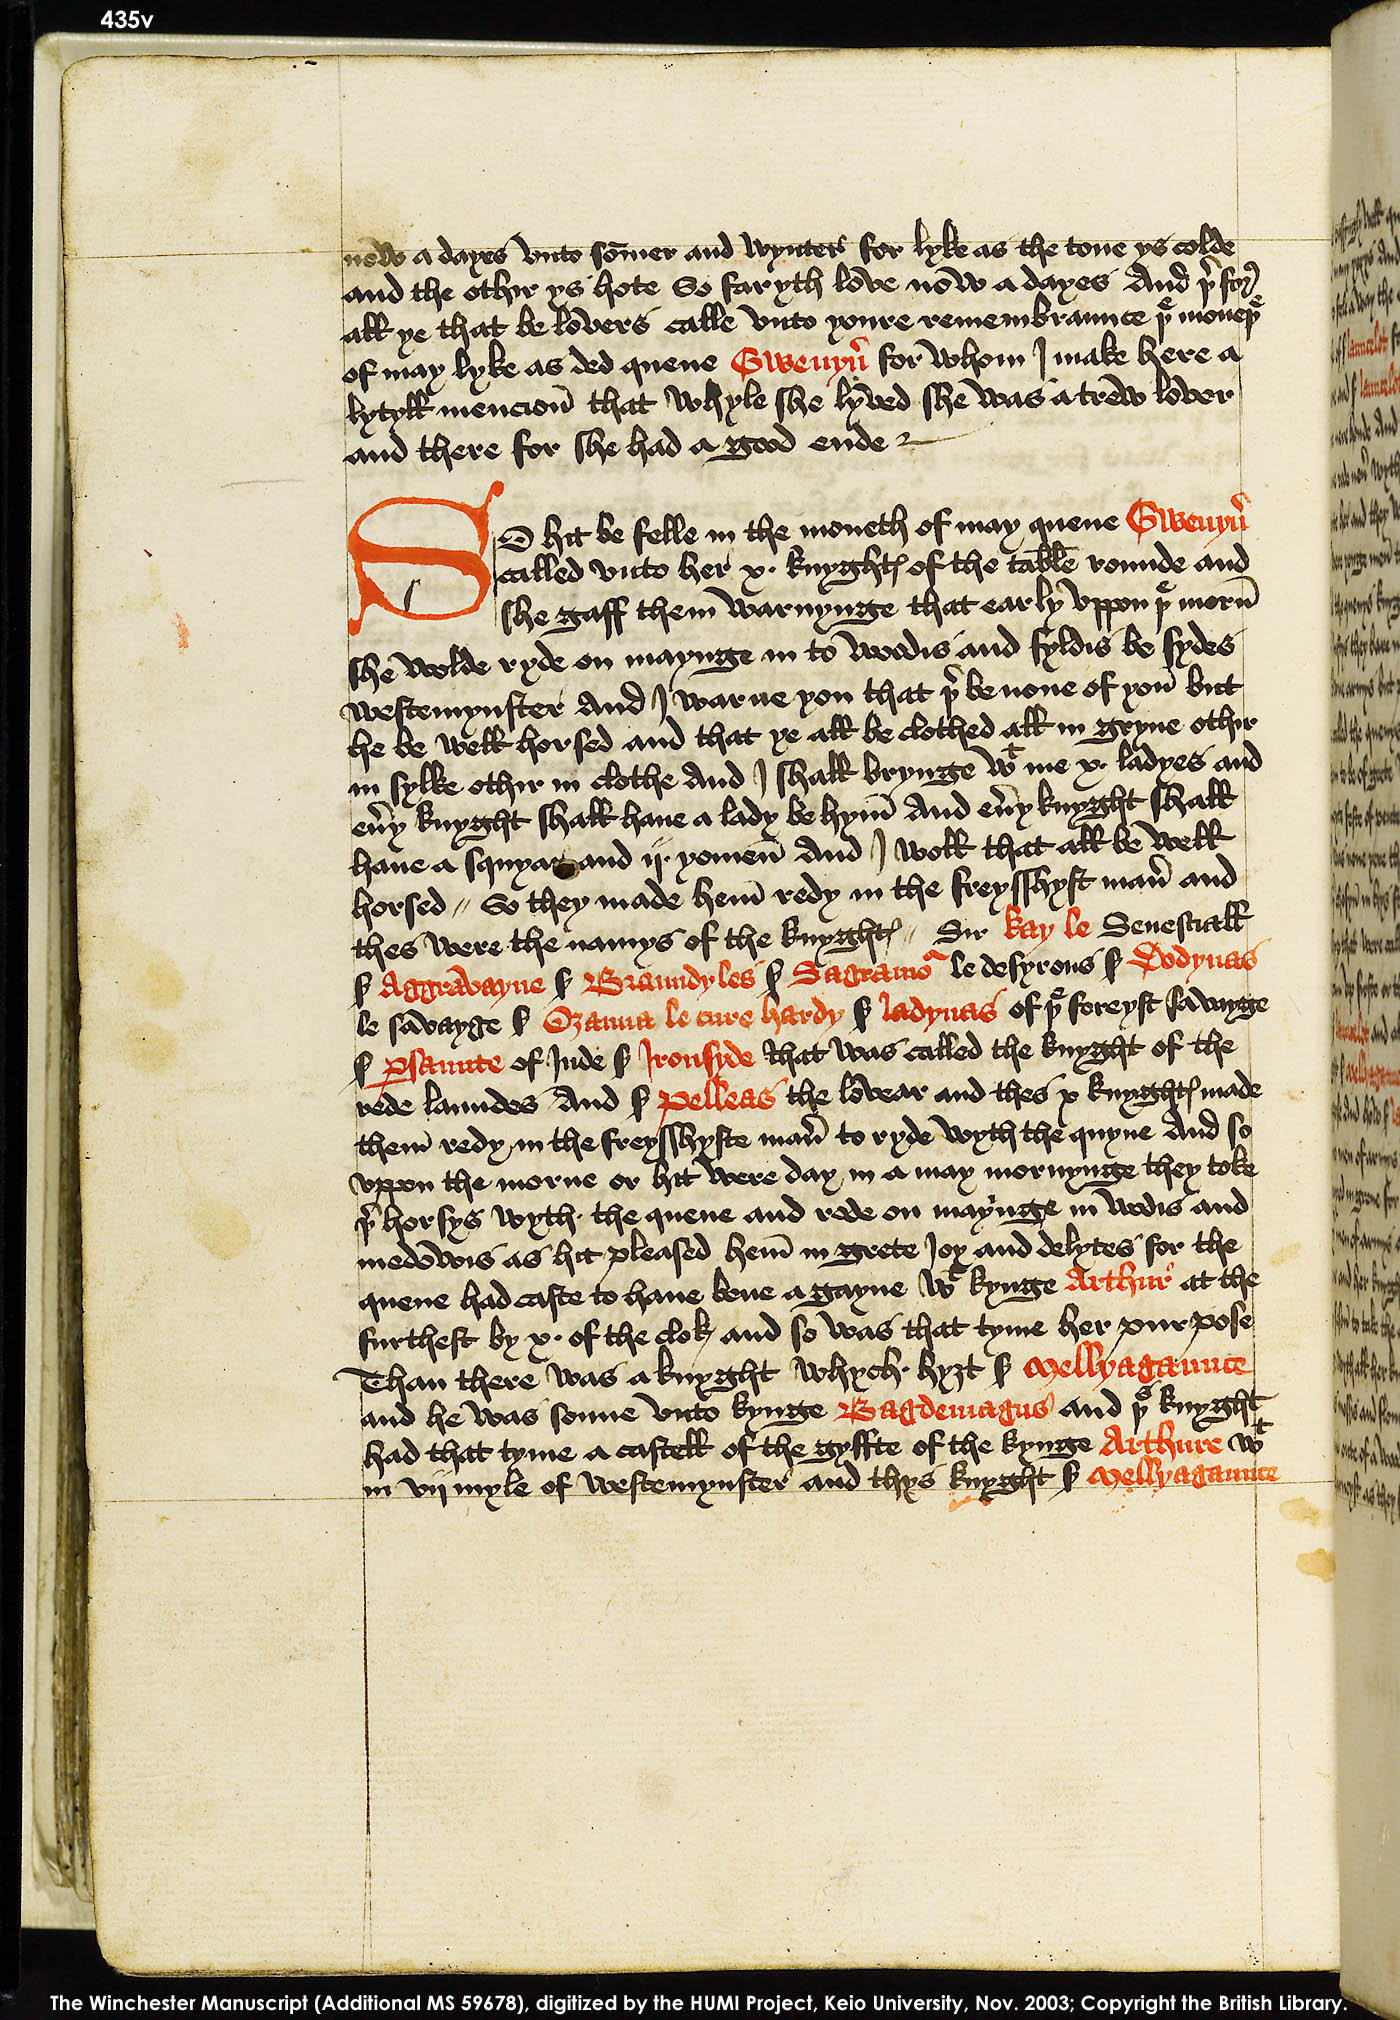 435v
now a dayes vnto som̄er and wynter for lyke as the tone ys colde
and the othir ys hote So faryth love now a dayes And þ͛for
all ye that be lovers calle vnto youre remembraunce þe moneþe
of may lyke as ded quene Gwenyu͛ for whom I make here a
lytyll mencion̄ that whyle she lyved she was a trew lover
and there for she had a good ende
SO hit be felle in the moneth of may quene Gwenyu͛
called vnto her x. knyghtꝭ of the table rounde and
she gaff them warnynge that early vppon þe morn̄
she wolde ryde on maynge in to woodis and fyldis be sydes
westemynster And I warne you that þ͛ be none of you but
he be well horsed and that ye all be clothed all in gryne othir
in sylke othir in clothe And I shall brynge wt me x. ladyes and
eu͛y knyght shall haue a lady be hym̄ And eu͛y knyght shall
haue a squyar and ij. yomen̄ And I woll that all be well
horsed // So they made hem̄ redy in the freysshyst man͛ and
thes were the namys of the knyghtꝭ // Sir kay le Senesciall
ẜ Aggravayne ẜ Braundyles ẜ Sagramor le desyrous ẜ Dodynas
le savayge ẜ Ozanna le cure hardy ẜ ladynas of þe foreyst savayge
ẜ ꝑsaunte of Inde ẜ Ironsyde that was called the knyght of the
rede laundes And ẜ pelleas the lovear and thes x knyghtꝭ made
them̄ redy in the freysshyste man͛ to ryde wyth the quyne And so
vppon the morne or hit were day in a may mornynge they toke
þ͛ horsys wyth the quene and rode on maynge in wodis and
medowis as hit pleased hem̄ in grete Joy and delytes for the
quene had caste to haue bene a gayne wt kynge Arthur at the
furthest by x. of the clok and so was that tyme her purpose
Than there was a knyght whych hyȝt ẜ Mellyagaunce
and he was sonne vnto kynge Bagdemagus and þs knyght
had that tyme a castell of the gyffte of the kynge Arthure wt
in vij myle of westemynster and thys knyght ẜ Mellyagaunce
The Winchester Manuscript (Additional MS 59678), digitized by the HUMI Project, Keio University, Nov. 2003; Copyright the British Library.